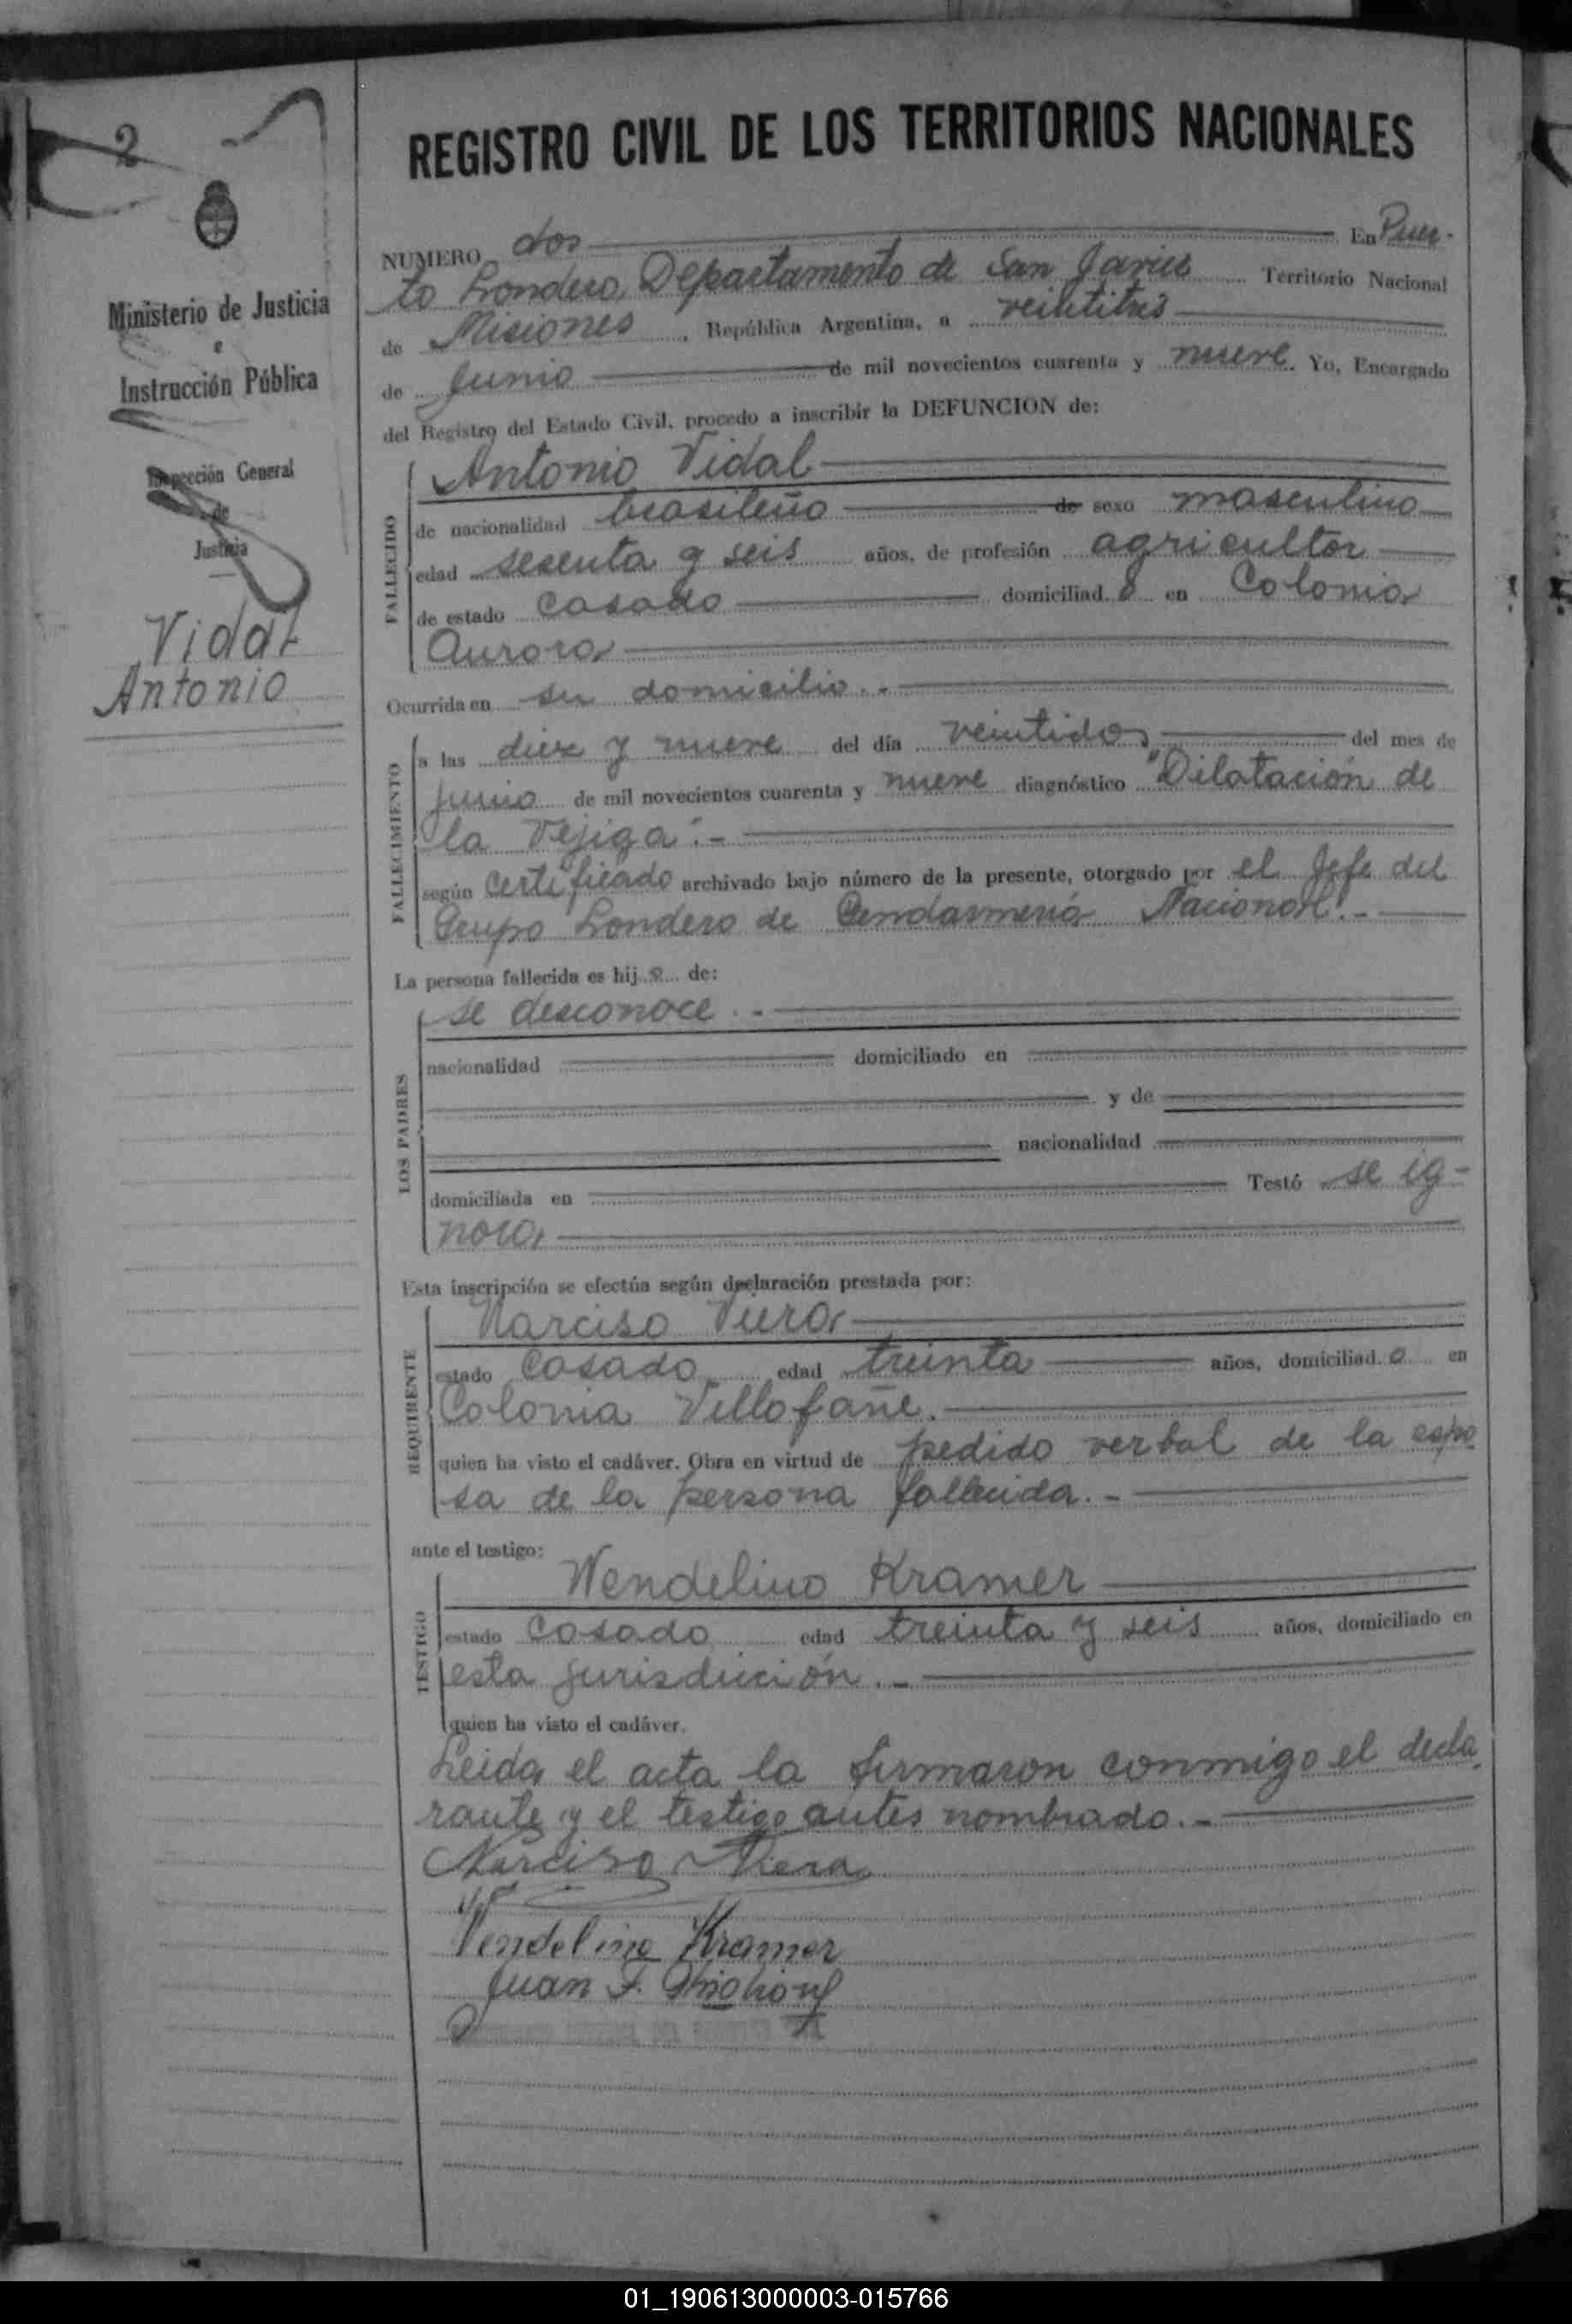 2
Ministerio de Justicia
e
Instrucción Pública
Inspección General
de
Justicia
Vidal
Antonio
REGISTRO CIVIL DE LOS TERRITORIOS NACIONALES
NUMERO dos En Puer-
to Londero, Departamento de San Javier Territorio Nacional
de Misiones, República Argentina, a veintitres
de Junio de mil novecientos cuarenta y nueve. Yo, Encargado
del Registro del Estado Civil, procedo a inscribir la DEFUNCION de:
FALLECIDO
Antonio Vidal
de nacionalidad brasileño de sexo masculino
edad sesenta y seis años, de profesión agricultor
de estado casado domiciliad o en Colonia
Aurora
Ocurrida en su domicilio.-
FALLECIMIENTO
a las diez y nueve del día veintidos del mes de
junio de mil novecientos cuarenta y nueve diagnóstico "Dilatación de
la Vejiga".-
según certificado archivado bajo número de la presente, otorgado por el Jefe del
Grupo Londero de Gendarmería Nacional.-
La persona fallecida es hij o de:
LOS PADRES
se desconoce.-
nacionalidad domiciliado en
y de
nacionalidad
domiciliada en Testó se ig-
nora
Esta inscripción se efectúa según declaración prestada por:
REQUIRENTE
Narciso Viera
estado casado edad treinta años, domiciliad o en
Colonia Villafañe.
quien ha visto el cadáver. Obra en virtud de pedido verbal de la espo
sa de la persona fallecida.-
ante el testigo:
TESTIGO
Wendelino Kramer
estado casado edad treinta y seis años, domiciliado en
esta jurisdicción.-
quien ha visto el cadáver.
Leida el acta la firmaron conmigo el decla
rante y el testigo antes nombrado.-
Narciso Viera
Wendelino Kramer
Juan F.
01_190613000003-015766